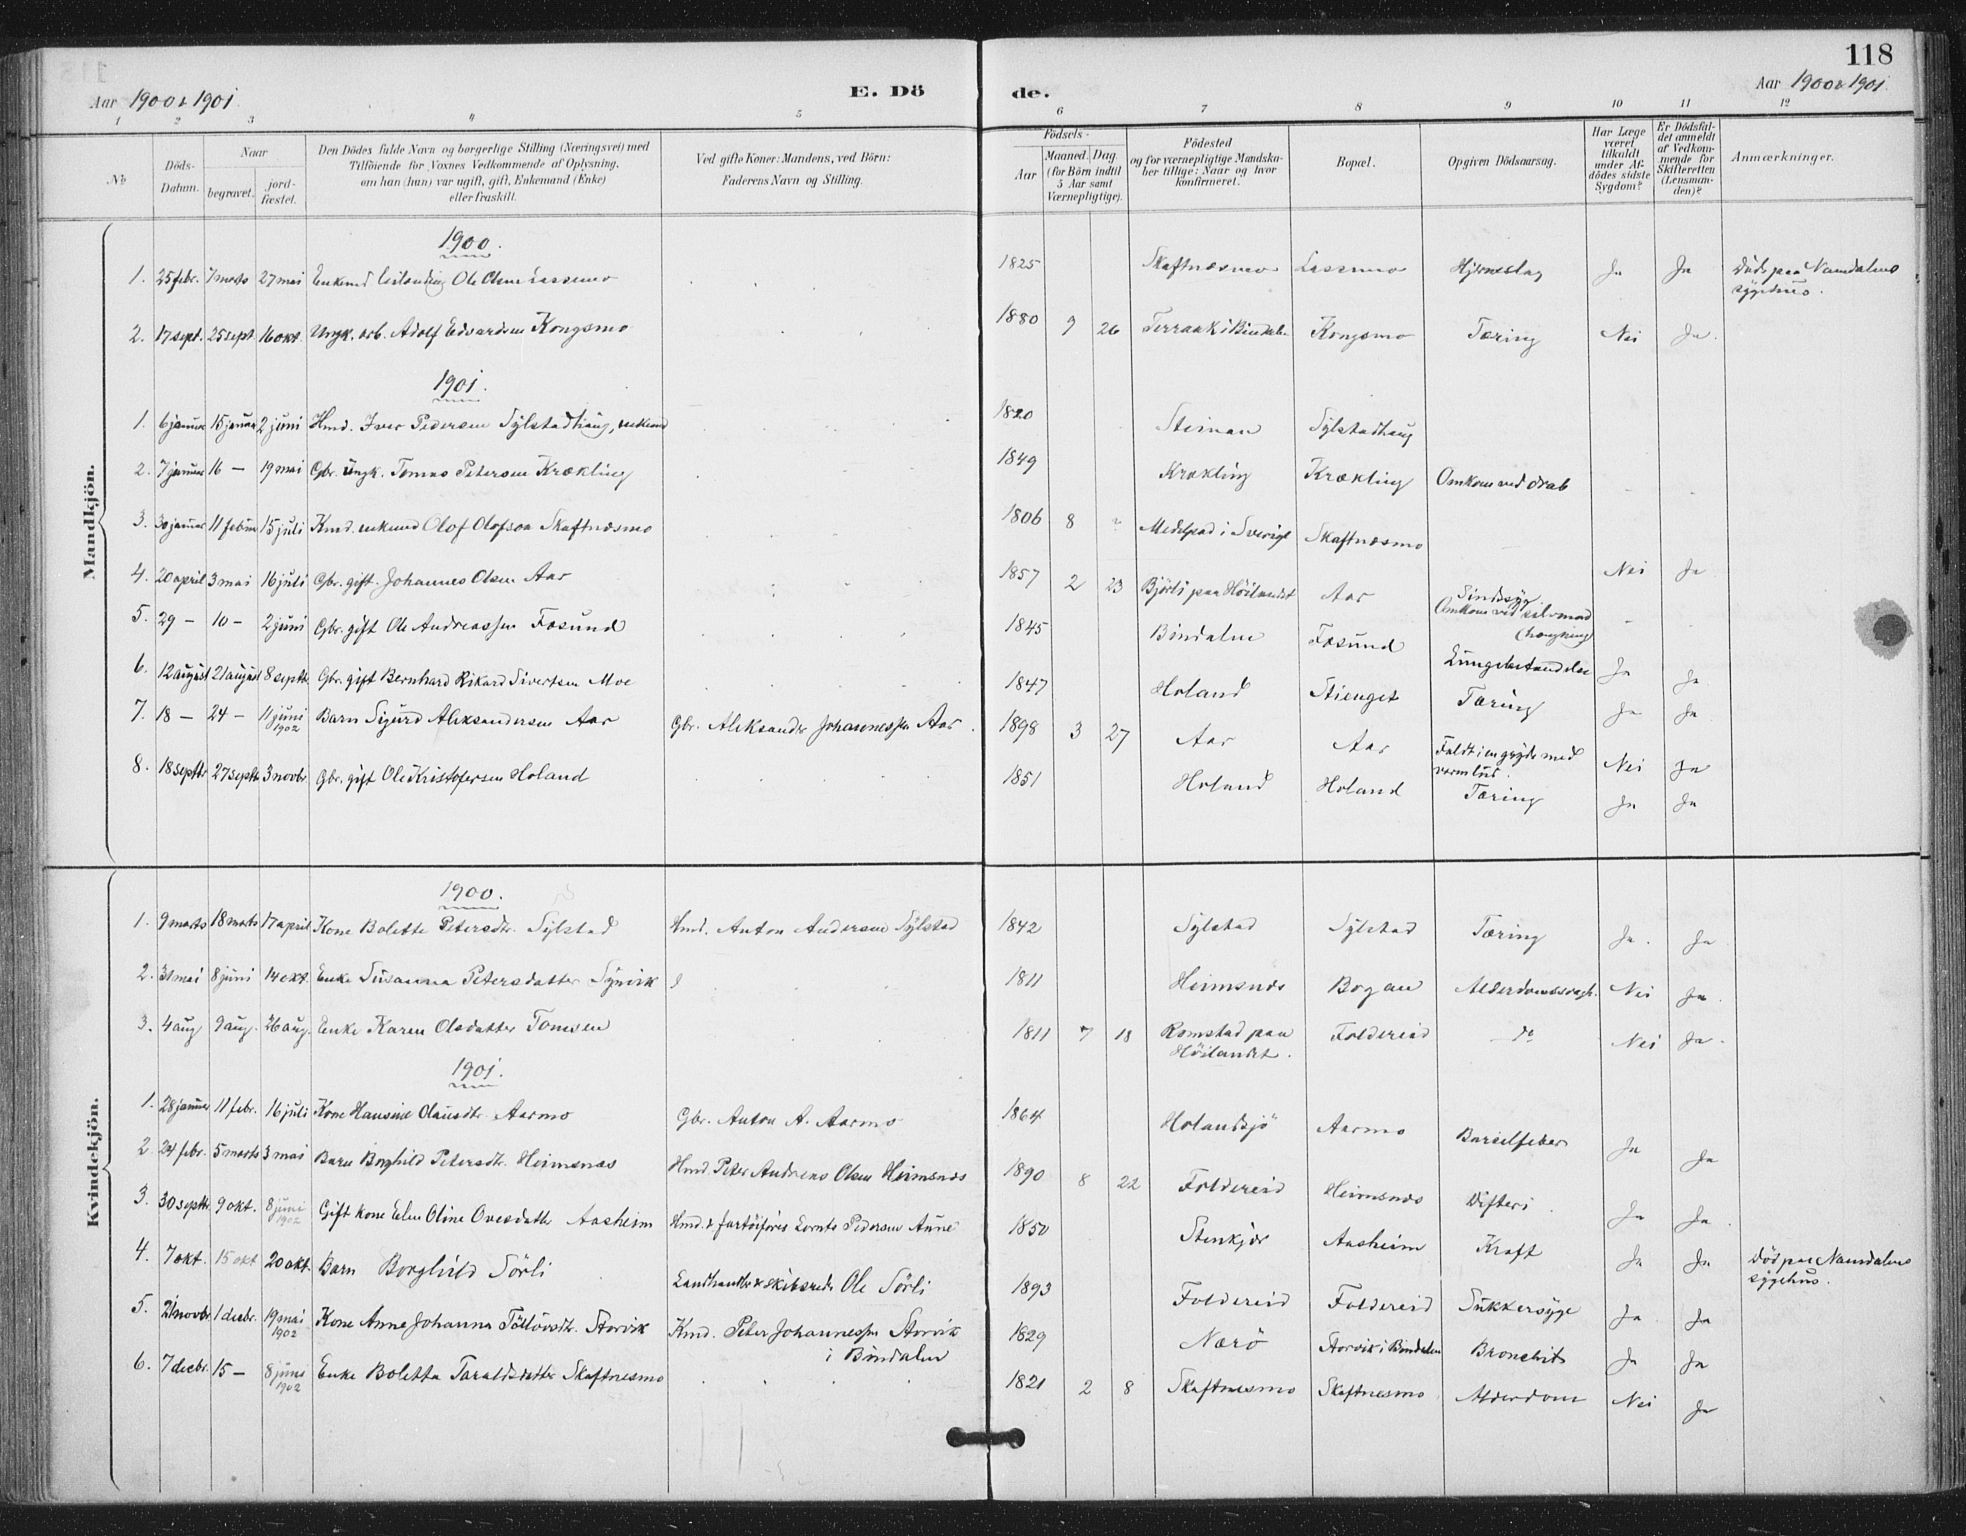 118
Aar 1900 & 1901
E. Dö
de.
Aar 1900 & 1901.
1 2 3 4 5 6 7 8 9 10 11 12
No
Döds-Datum.
Naar
begravet.
jord-fæstet.
Den Dödes fulde Navn og borgerlige Stilling (Næringsvei) med
Tilföiende for Voxnes Vedkommende af Oplysning,
om han (hun) var ugift, gift, Enkemand (Enke)
eller fraskilt.
Ved gifte Koner: Mandens, ved Börn:
Faderens Navn og Stilling.
Födsels-
Aar
Maaned. Dag.
(for Börn indtil
5 Aar samt
Værnepligtige).
Födested
og for værnepligtige Mandska-
ber tillige: Naar og hvor
konfirmeret.
Bopæl.
Opgiven Dödsaarsag.
Har Læge
været
tilkaldt
under Af-
dödes sidste
Sygdom?
Er Dödsfal-
det anmeldt
af Vedkom-
mende for
Skifteretten
(Lensman-
den)?
Anmærkninger.
Mandkjön.
1900.
1. 25 febr. 7 marts 27 mai Enkemd Ole Olsen Lassemo 1825 Skaftnæsmo Lassemo Hjerneslag Ja Ja Död paa Namdalens
sygehus.
2. 17 sept. 25 sept 16 okt. Ungk. arb. Adolf Edvardsen Kongsmo 1880 9 26 Terraak i Bindalen Kongsmo Tæring Nei Ja.
1901.
1. 6 januar 15 januar 2 juni Hmd. Iver Pedersen Sylstadhaug, enkemd 1820 Steinan Sylstadhaug
2. 7 januar 16 — 19 mai Gbr. ungk. Tomas Petersen Krækling 1849 Krækling Krækling Omkom ved drab - -
3. 30 januar 11 februar 15 juli Kmd. enkemd Olof Olofson Skaftnæsmo 1806 8 Medelpad i Sverige Skaftnæsmo Nei Ja
4. 20 april 3 mai 16 juli Gbr. gift. Johannes Olsen Aar 1857 2 23 Björli paa Höilandet Aar Sindssyg
Omkom ved selvmord
(hængning) - -
5. 29 — 10 — 2 juni Gbr. gift Ole Andreassen Fosund 1845 Bindalen Fosund Lungebetændelse Ja Ja
6. 12 august 21 august 8 septbr. Gbr. gift Bernhard Rikard Sivertsen Moe 1847 Holand Stienget Tæring Ja Ja
7. 18 — 24 — 11 juni
1902 Barn Sigurd Aleksandersen Aar Gbr. Aleksander Johannessen Aar. 1898 3 27 Aar Aar Faldt i en gryde med
varm lud. Nei Ja
8. 18 septbr 27 septbr 3 novbr. Gbr. gift Ole Kristofersen Holand 1851 Holand Holand Tæring Ja Ja
Kvindekjön.
1900.
1. 9 marts 18 marts 17 april Kone Bolette Petersdtr. Sylstad Hmd. Anton Andersen Sylstad 1842 Sylstad Sylstad Tæring Ja. Ja
2. 31 mai 8 juni 14 okt. Enke Susanna Petersdatter Synvik 1811 Heimsnæs Bogan Alderdomssvagh. Nei Ja.
3. 4 aug 9 aug. 26 aug. Enke Karen Olsdatter Tomesen 1811 7 18 Romstad paa
Höilandet. Foldereid do Nei Ja.
1901.
1. 28 januar 11 febr. 16 juli Kone Hansine Olausdtr. Aarmo Gbr. Anton A. Aarmo 1864 Holandsjö Aarmo Barselfeber Ja Ja
2 24 febr. 5 marts 3 mai Barn Borghild Petersdtr. Heimsnæs Hmd. Peter Andreas Olsen Heimsnæs 1890 8 22 Foldereid Heimsnæs Difteri. Ja Ja.
3. 30 septbr. 9 okt. 8 juni
1902 Gift kone Elen Oline Ovesdatter Aasheim Hmd. & fartöiförer Lornts Pedersen Aune 1850 Stenkjær Aasheim Kræft Ja Ja Död paa Namdalens
sygehus.
4. 7 okt. 15 okt 20 okt. Barn Borghild Sörli Landhandler & skibsreder Ole Sörli 1893 Foldereid Foldereid Sukkersyge Ja Ja
5. 21 novbr. 1 decbr. 19 mai
1902 Kone Anne Johanna Tollövsdtr. Storvik Kmd. Peter Johannessen Storvik
i Bindalen 1829 Nærö Storvik i Bindalen Bronchit Ja Ja
6. 7 decbr. 15 — 8 juni
1902 Enke Boletta Taraldsdatter Skaftnesmo 1821 2 8 Skaftnesmo Skaftnesmo Alderdom Nei Ja